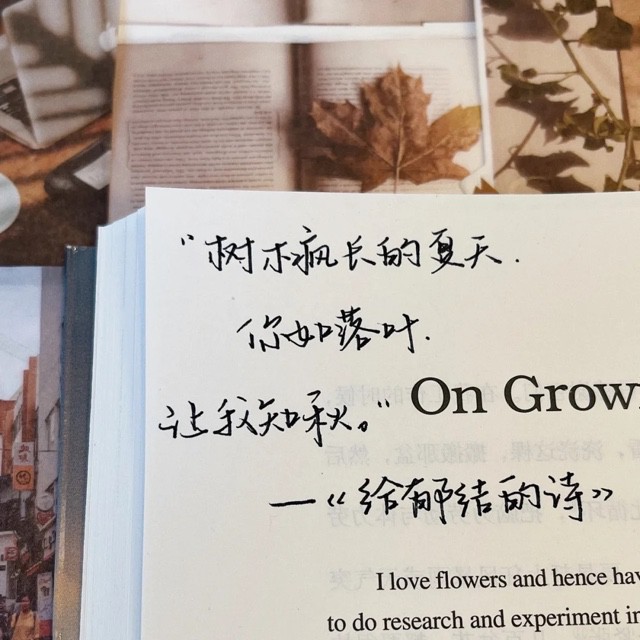 "树木疯长的夏天.
你如落叶.
让我知秋。"
On Grow
—《给郁结的诗》
I love flowers and hence hav
to do research and experiment in